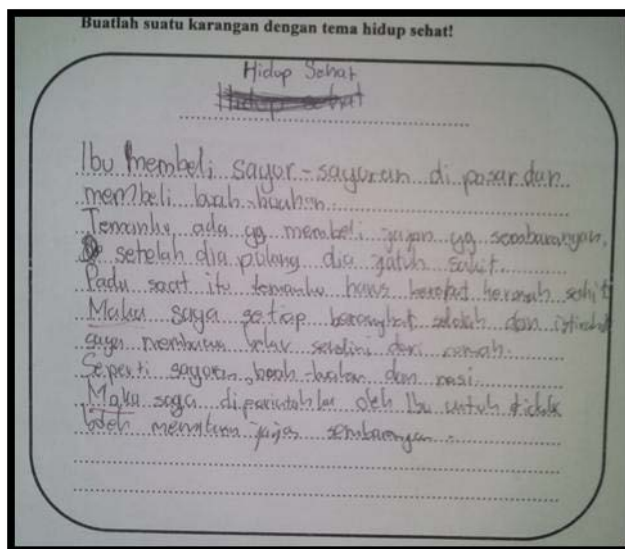 Buatlah suatu karangan dengan tema hidup sehat!
Hidup Sehat
Ibu membeli sayur-sayuran di pasar dan
membeli buah-buahan.
Temanku ada yg membeli jajan yg sembarangan,
setelah dia pulang dia jatuh sakit.
Pada saat itu temanku harus kerumah sakit
Maka saya setiap berangkat sekolah dan istirahat
saya membawa dari rumah.
Seperti sayuran, buah-buahan dan nasi.
Maka saya diperintahkan oleh Ibu untuk tidak
boleh memakan jajan sembarangan.